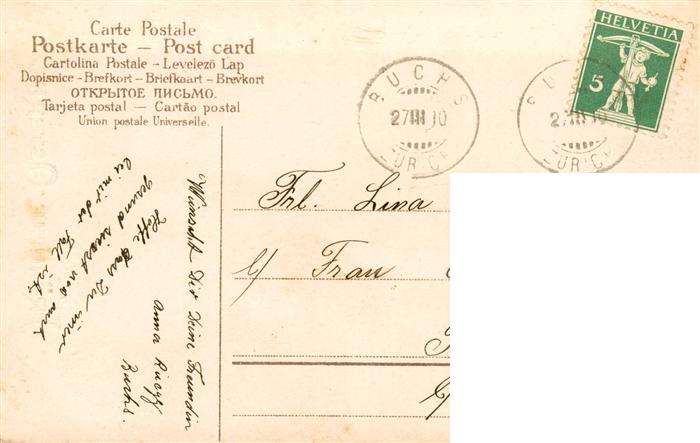 Carte Postale
Postkarte – Post card
Cartolina Postale – Levelező Lap
Dopisnice – Brefkort – Briefkaart – Brevkort
ОТКРЫТОЕ ПИСЬМО.
Tarjeta postal – Cartão postal
Union postale Universelle.
BUCHS
27 III 10
ZÜRICH
BUCHS
27 III 10
ZÜRICH
HELVETIA
5
Frl. Lina
c/ Frau
Wünscht Dir Deine Freundin
Anna
Buchs.
Hoffe das Du
gesund was auch
bei mir der Fall ist.